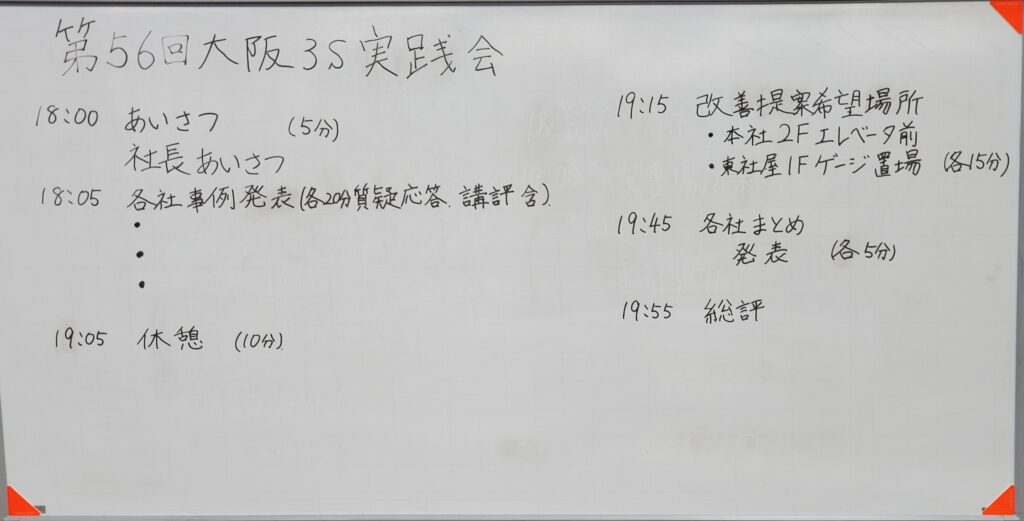 第56回大阪3S実践会
18:00 あいさつ (5分)
社長あいさつ
18:05 各社事例発表(各20分質疑応答、講評含)
・
・
・
19:05 休憩 (10分)
19:15 改善提案希望場所
・本社2Fエレベータ前
・東社屋1Fゲージ置場 (各15分)
19:45 各社まとめ
発表 (各5分)
19:55 総評